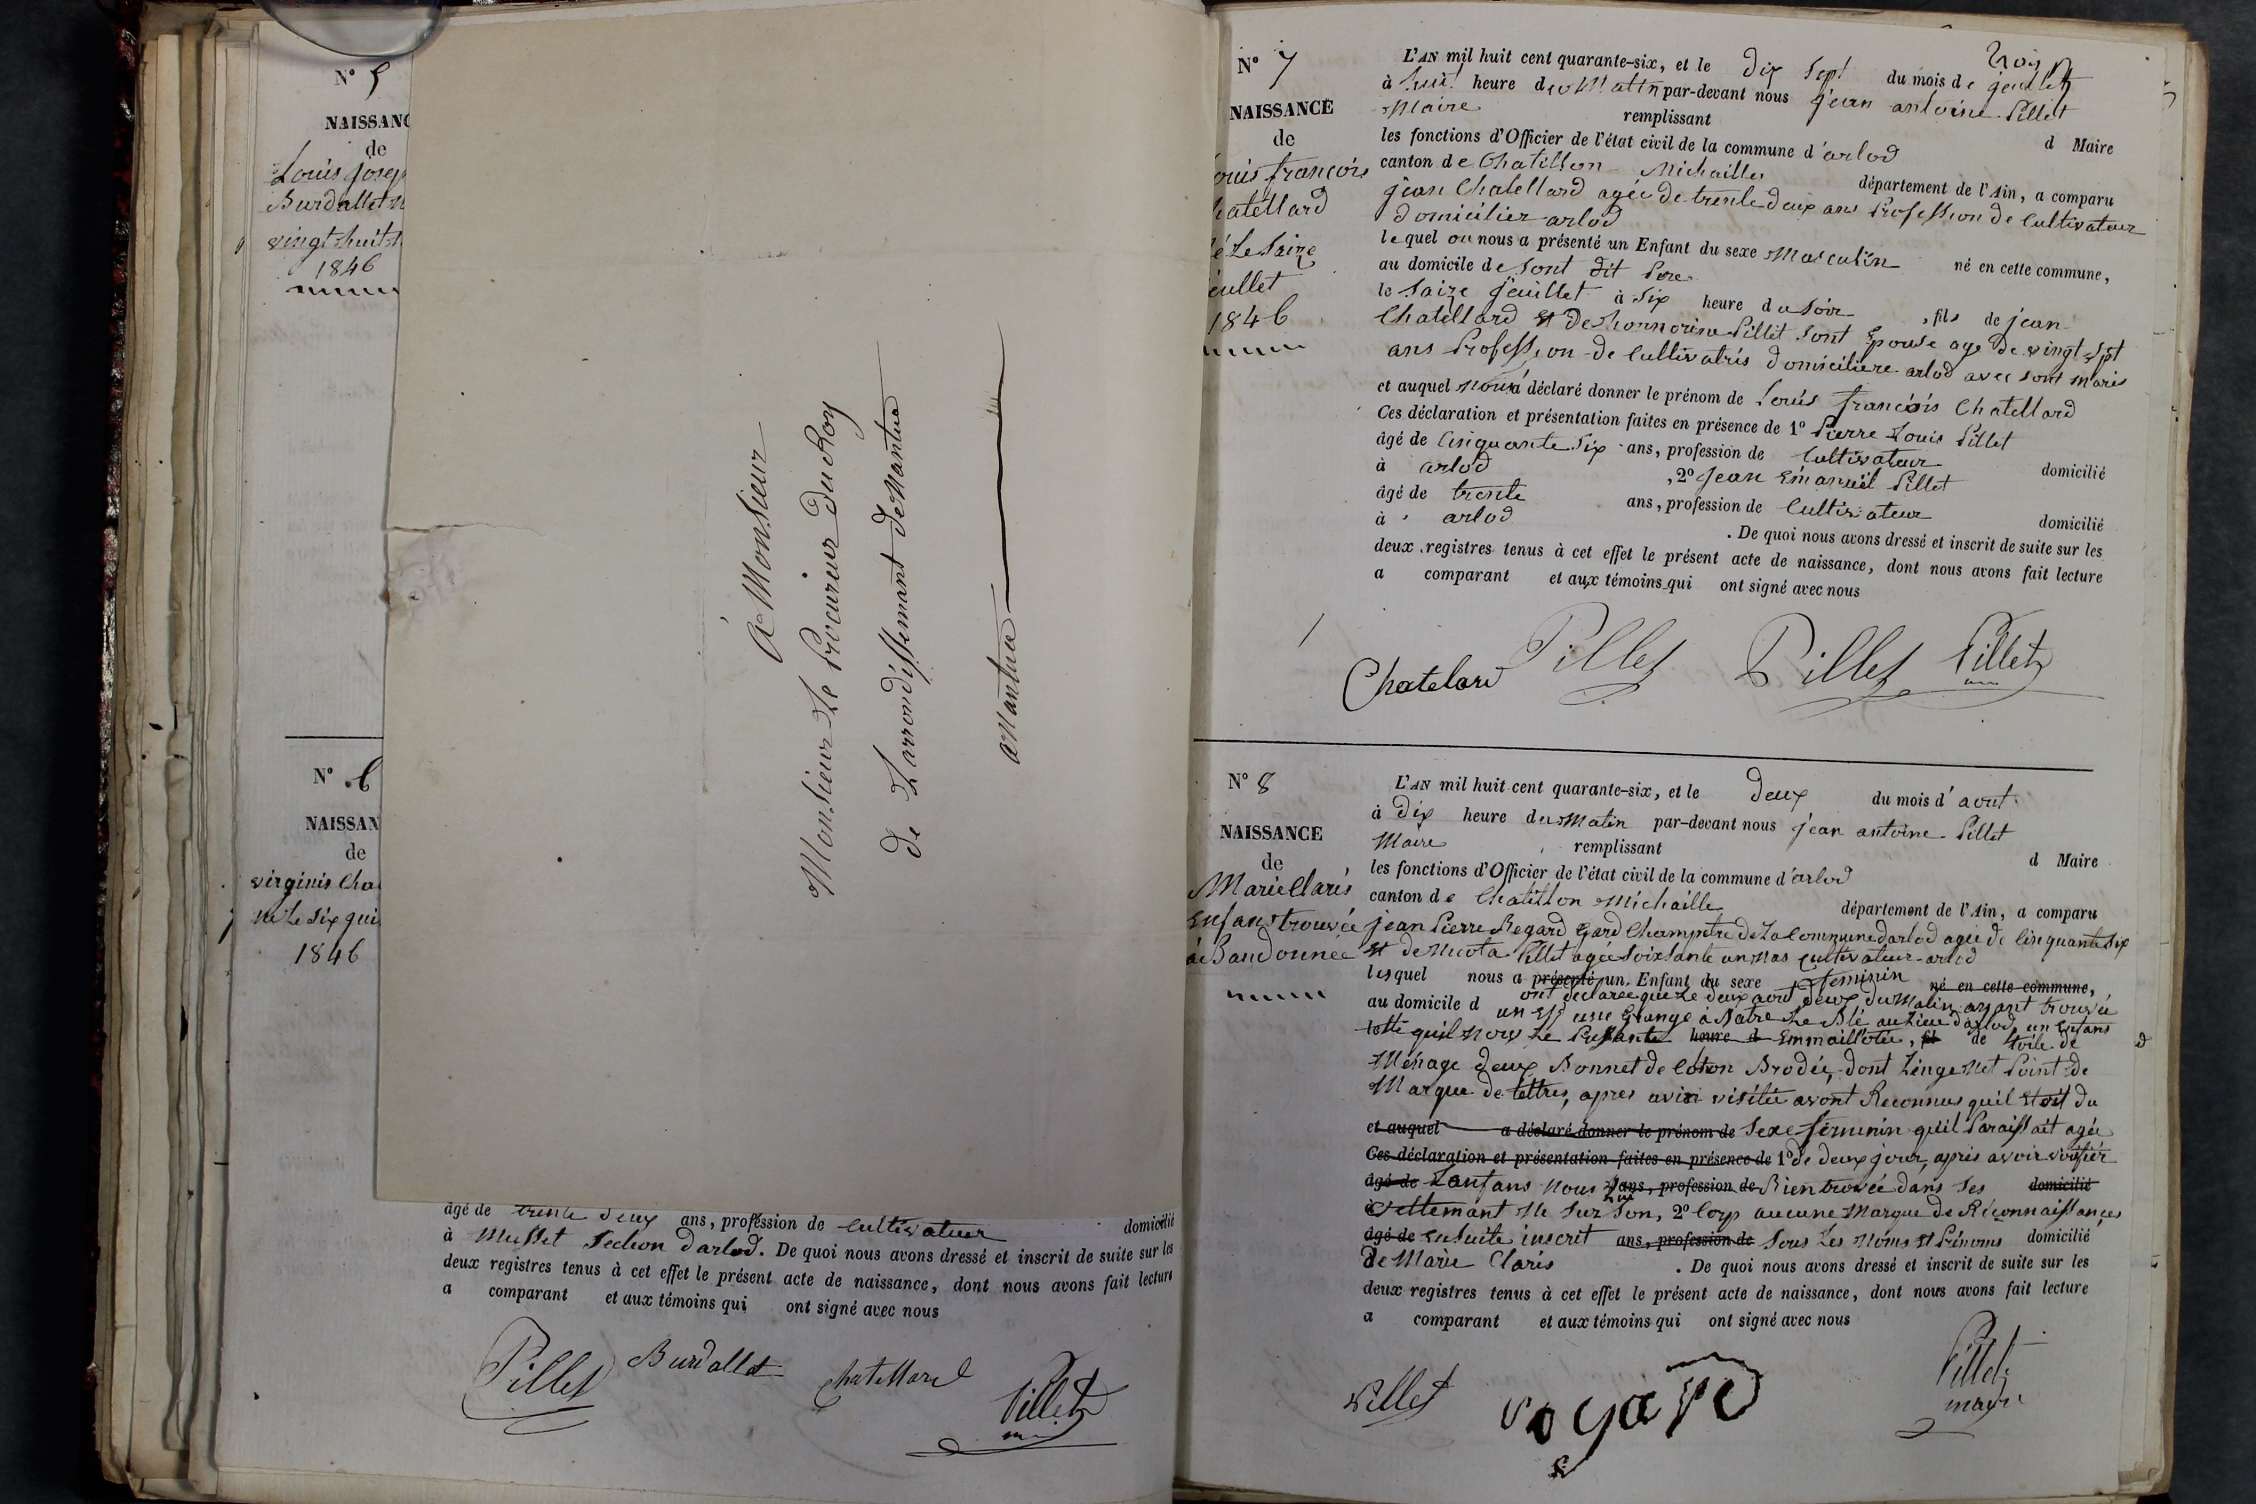 N° 5
NAISSANC
de
Louis josep
Burdallet n
vingt huit
1846
N° 6
NAISSAN
de
virginis Cha
né Le Six
1846
A Monsieur
Monsieur Le Procureur Du Roy
de Larrondissemant de Nantua
a Nantua
âgé de trente deux ans, profession de Cultivateur domicilié
à Musset Section d'arlod. De quoi nous avons dressé et inscrit de suite sur les
deux registres tenus à cet effet le présent acte de naissance, dont nous avons fait lecture
a comparant et aux témoins qui ont signé avec nous
Pillet Burdallet Chatellard Pillet
trois
N° 7
NAISSANCE
de
ouis françois
hatellard
é Le Saize
euillet
1846
L'AN mil huit cent quarante-six, et le dix sept du mois de jeuillet
à huit heure du Matin par-devant nous jean antoine Pillet
Maire remplissant
les fonctions d'Officier de l'état civil de la commune d'arlod d Maire
canton de Chatillon Michailles département de l'Ain, a comparu
jean Chatellard agée de trente deux ans Profession de Cultivateur
domicilier arlod
lequel ou nous a présenté un Enfant du sexe Masculin né en cette commune,
au domicile de Sont dit Pere
le Saize Jeuillet à Six heure du Soir, fils de jean
Chatellard et de honnorine Pillit Sont Epouse age de vingt Sept
ans Profession de Cultivatris domiciliere arlod avec Sont Maris
et auquel nous a déclaré donner le prénom de Louis françois Chatellard
Ces déclaration et présentation faites en présence de 1° Pierre Louis Pillet
âgé de Cinquante Six ans, profession de Cultivateur domicilié
à arlod, 2° Jean Emanuël Pillet
âgé de trente ans, profession de Cultivateur domicilié
à arlod. De quoi nous avons dressé et inscrit de suite sur les
deux registres tenus à cet effet le présent acte de naissance, dont nous avons fait lecture
a comparant et aux témoins qui ont signé avec nous
Chatelard Pillet Pillet Pillet
N° 8
NAISSANCE
de
Marie Claris
Enfans trouvée
a Bandonnée
L'AN mil huit cent quarante-six, et le Deux du mois d'aout
à Dix heure du Matin par-devant nous jean antoine Pillet
Maire remplissant
les fonctions d'Officier de l'état civil de la commune d'arlod d Maire
canton de Chatillon Michaille département de l'Ain, a comparu
jean Pierre Regard Gard Champetre de La Commune darlod agée de Cinquante Six
et de Pillet agée Soixsante un cultivateur arlod
lesquel nous a présenté un Enfant du sexe feminin né en cette commune,
ont déclaree que Le deux aout deux du Matin ayant trouvée
au domicile d une Grange a Batre Le Blé au Lieu darlod un Enfans
quil nous Le heure d Emmaillotée, de toile de
Ménage deux Bonnet de Coton Brodée, dont Linge net Point de
Marque de lettres, apres visitée avont Reconnus quil etoit du
et auquel a déclaré donner le prénom de Sexe féminin quil Paraissait agée
Ces déclaration et présentation faites en présence de 1° de deux jour, après avoir
âgé de Lanfans nous ans, profession de Rien trouvée dans Ses domicilié
à vettemant ne Sur Son, 2° Corp aucune Marque de Réconnaissances
âgé de ensuite inscrit ans, profession de Sous Les noms et Prénoms domicilié
de Marie Claris. De quoi nous avons dressé et inscrit de suite sur les
deux registres tenus à cet effet le présent acte de naissance, dont nous avons fait lecture
a comparant et aux témoins qui ont signé avec nous
Pillet Pillet